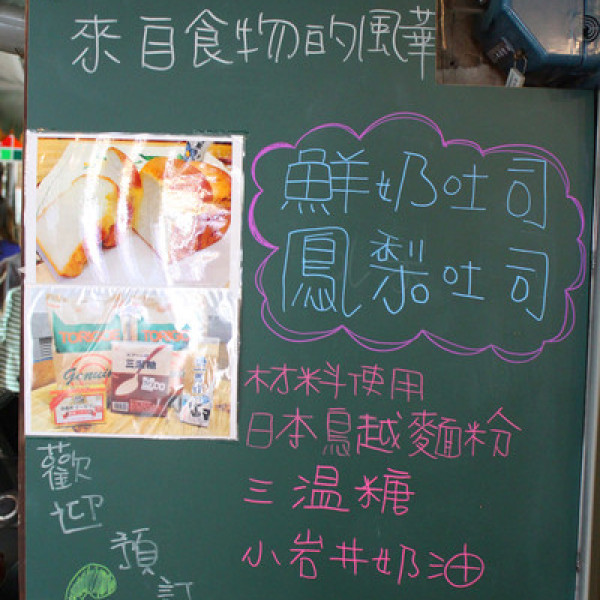 來自食物的風華
鮮奶吐司
鳳梨吐司
材料使用
日本鳥越麵粉
三温糖
小岩井奶油
三温糖
歡迎
預訂